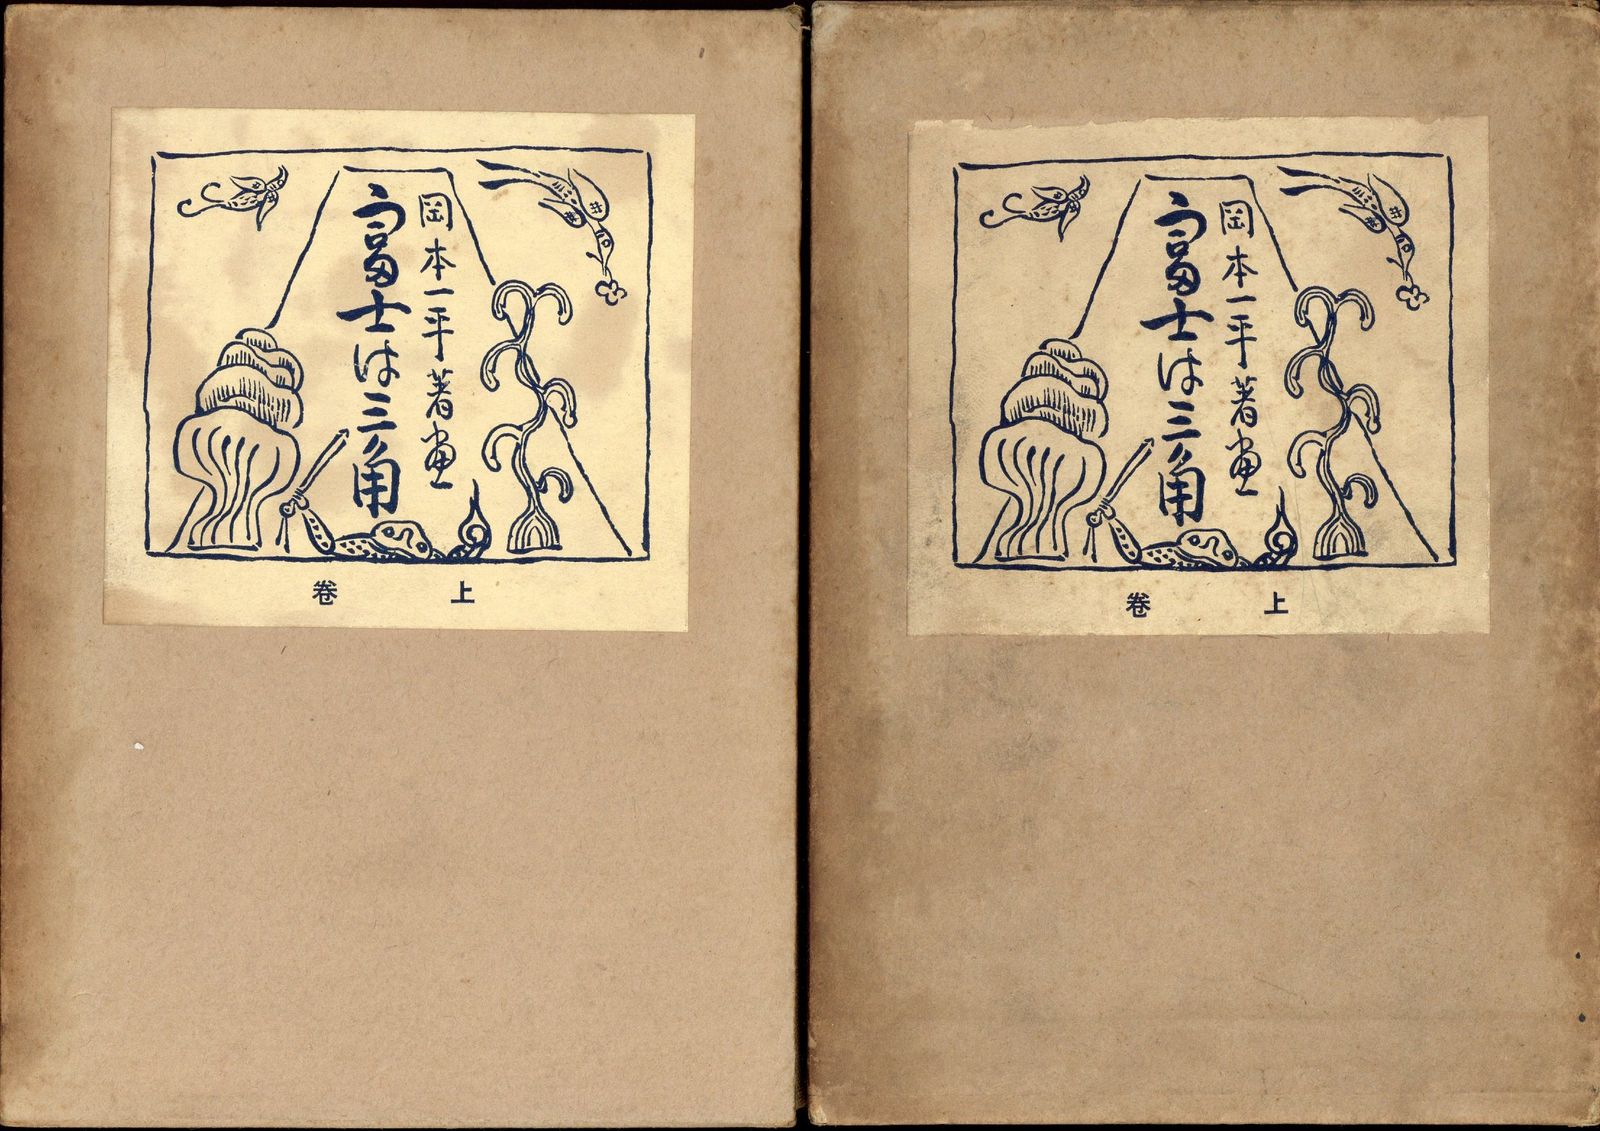 岡本一平著画
富士は三角
上卷
岡本一平著画
富士は三角
上卷